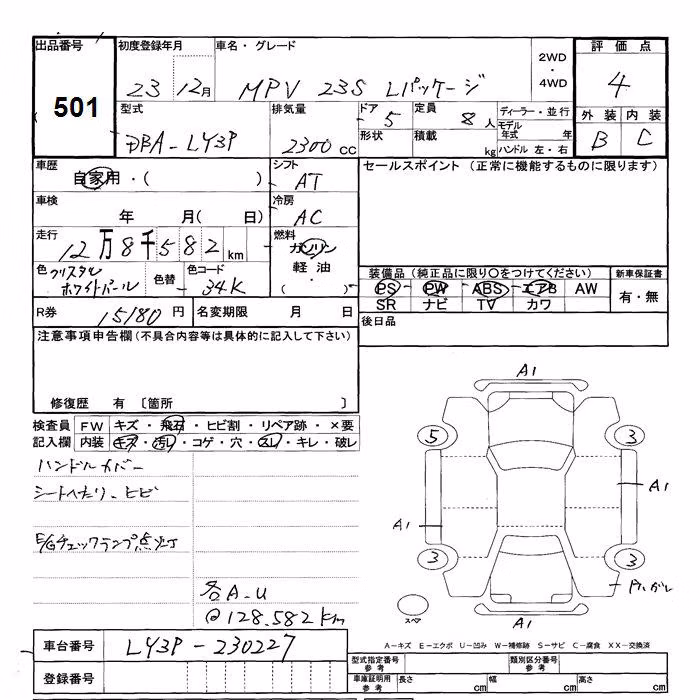 出品番号 初度登録年月 車名・グレード 2WD・4WD 評価点
501 23 12月 MPV 23S Lパッケージ 4
型式 排気量 ドア 5 定員 8人 ディーラー・並行 外装 内装
DBA-LY3P 2300 cc 形状 積載 kg モデル年式 年 B C
ハンドル 左・右
車歴 自家用・( ) シフト AT セールスポイント (正常に機能するものに限ります)
車検 年 月( 日) 冷房 AC
走行 12万8千582km 燃料 ガソリン
軽油・( )
色 クリスタルホワイトパール 色替 色コード 34K
装備品 (純正品に限り○をつけてください) 新車保証書
PS PW ABS エアB AW 有・無
SR ナビ TV カワ
R券 15180円 名変期限 月 日 後日品
注意事項申告欄 (不具合内容等は具体的に記入して下さい)
修復歴 有 〔箇所 〕
検査員 FW キズ・飛石・ヒビ割・リペア跡・×要
記入欄 内装 キズ・汚レ・コゲ・穴・スレ・キレ・破レ
ハンドルカバー
シートへたり、ヒビ
E/Gチェックランプ点灯
各A-U
@128.582km
A1
5 3
A1
A1
3 3
スペア A1
車台番号 LY3P-230227
登録番号
A-キズ E-エクボ U-凹み W-補修跡 S-サビ C-腐食 XX-交換済
型式指定番号 参考 類別区分番号 参考
車庫証明用 参考 長さ cm 幅 cm 高さ cm